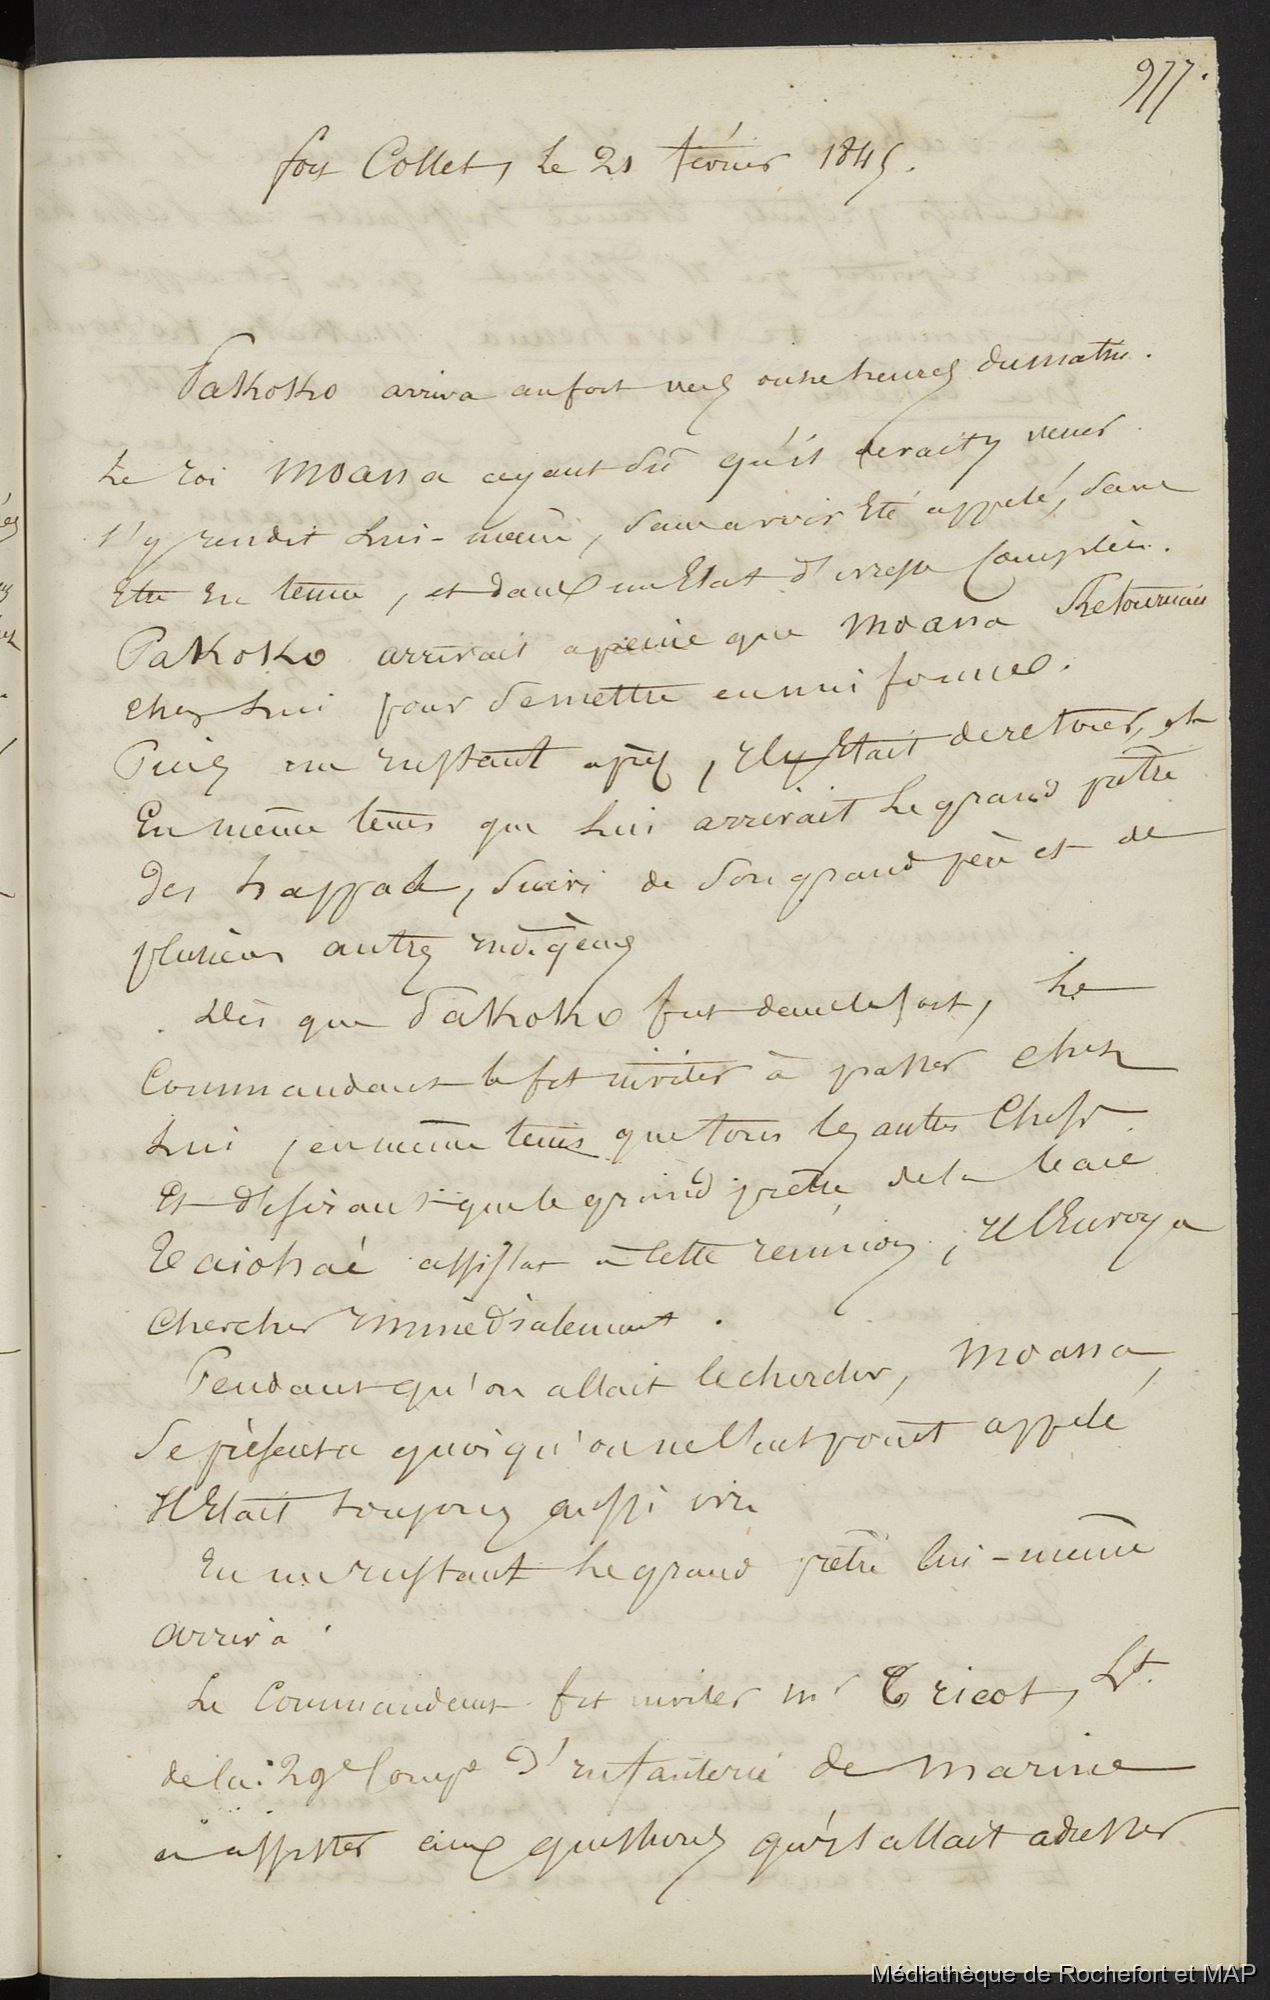 977.
fort Collet, le 21 février 1845.
Pakoko arriva au fort vers onze heures du matin.
Le roi Moana ayant su qu'il devait y venir
s'y rendit lui-même, sans avoir été appelé, sans
être en tenue, et dans un état d'ivresse complète.
Pakoko arrivait à peine que Moana retournait
chez lui pour se mettre en uniforme.
Puis un instant après, il y était de retour, et
en même tems que lui arrivait le grand prêtre
des happah, suivi de son grand père et de
plusieurs autres indigènes
Dès que Pakoko fut dans le fort, le
Commandant le fit inviter à passer chez
lui, en même tems que tous les autres chefs.
Et désirant que le grand prêtre de la baie
Taiohaé assistat à cette réunion, il l'envoya
chercher immédiatement.
Pendant qu'on allait le chercher, Moana,
se présenta quoiqu'on ne l'eut point appelé
Il était toujours aussi ivre
En un instant le grand prêtre lui-même
arriva.
Le Commandant fit inviter Mr Tricot, Lt.
de la 29e Compe d'infanterie de marine
à assister aux questions qu'il allait adresser
Médiathèque de Rochefort et MAP